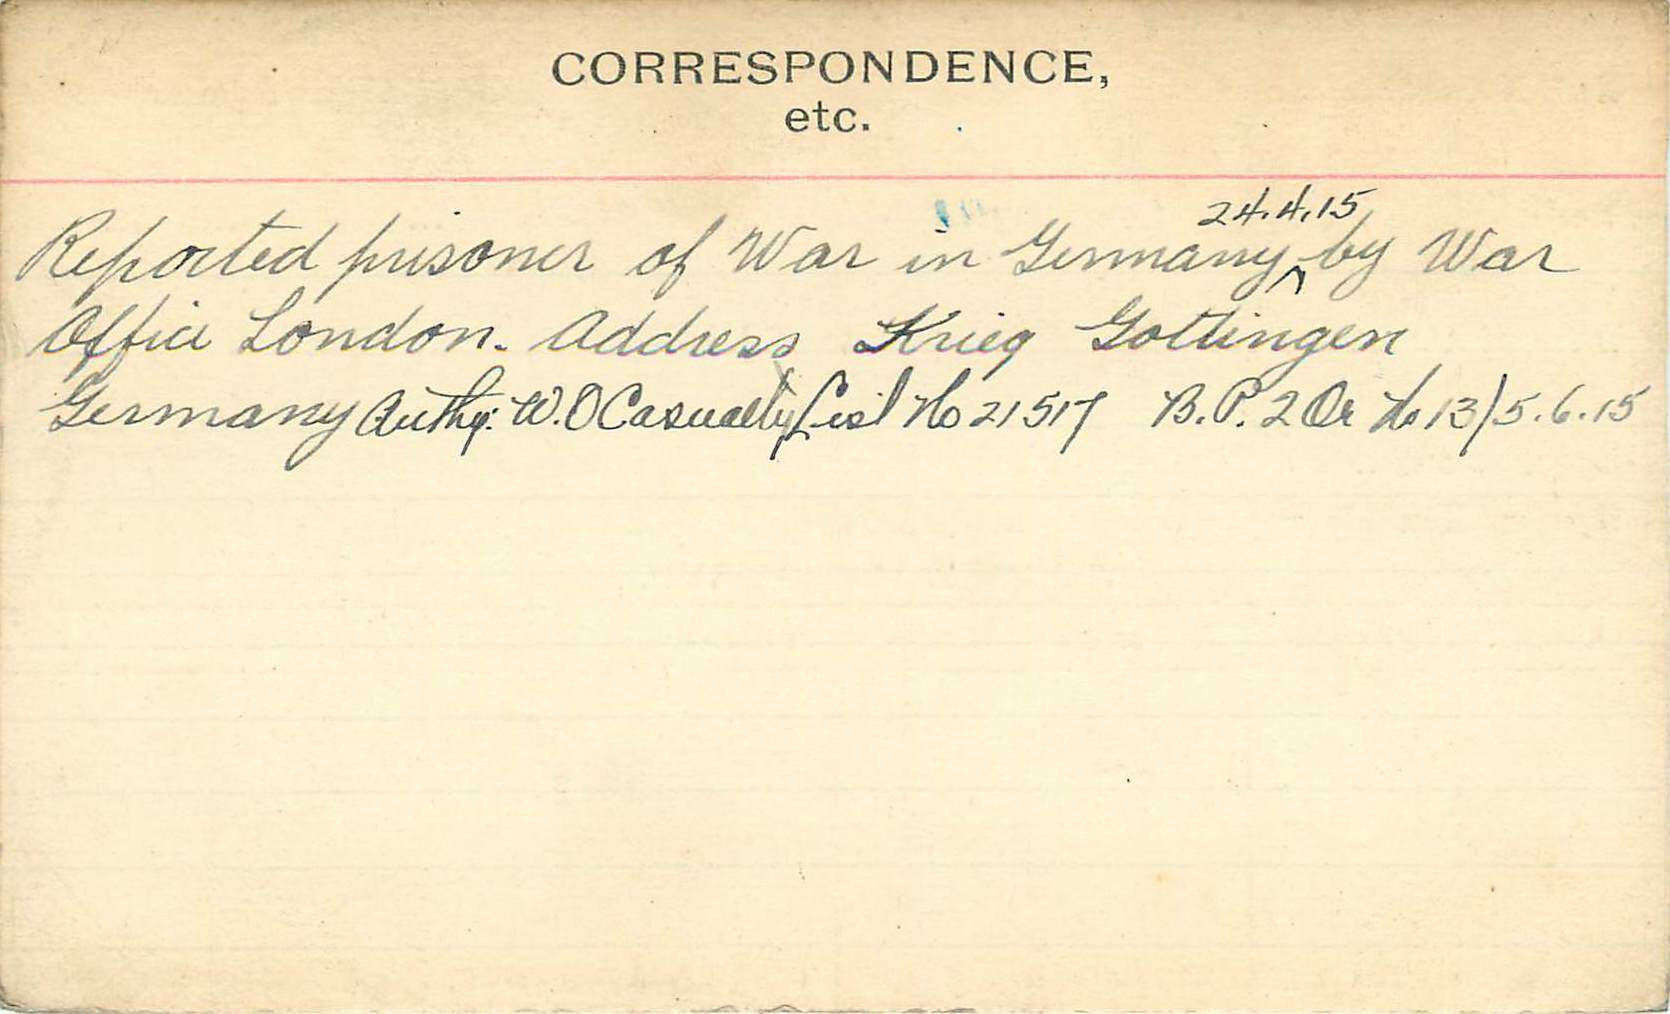 CORRESPONDENCE,
etc.
24.4.15
Reported prisoner of War in Germany ^ by War
Office London. Address Krieg Gottingen
Germany Authy: W.O Casualty List No 21517 B.P. 2 Or No 13/5.6.15